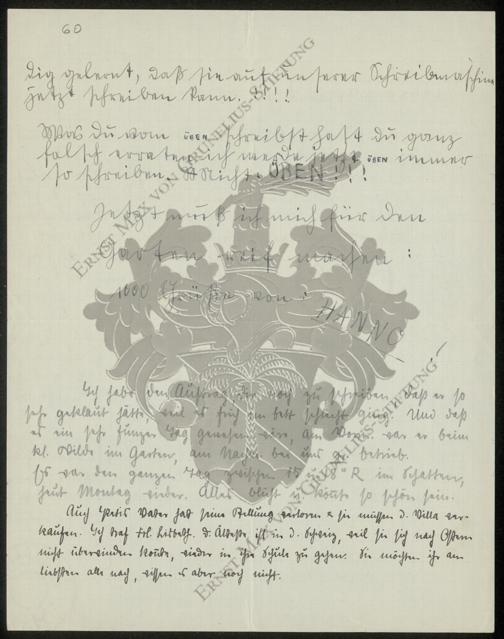 60
dig gelernt, daß sie auf unserer Schreibmaschine
jetzt schreiben kann. !!!
Was du vom ÜBEN schreibst hast du ganz
falsch erraten ich werde jetzt ÜBEN immer
so schreiben. Nicht ÜBEN !!!
Jetzt muß ich mich für den
Garten reif machen:
1000 Grüße von:
HANNO
Ich habe den Auftrag Dir noch zu schreiben, daß er so
sehr geklaut hätte, weil es früh im bett schlecht ging. Und daß
es ein sehr junger Tag gewesen wäre, am Vorm. war er beim
kl. Wilde im Garten, am Nachm. bei uns gr. betrieb.
Es war den ganzen Tag zwischen 15 18° R im Schatten,
heut Montag wieder. Alles blüht könnte so schön sein.
Auch Vater hat seine Stellung verloren & sie müssen d. Villa ver-
kaufen. Ich traf Frl. d. Älteste ist in d. Schweiz, weil sie sich nach Ostern
nicht überwinden konnte, wieder in ihre Schule zu gehen. Sie möchten ihr am
liebsten alle nach, wissen es aber noch nicht.
ERNST MAX VON GRUNELIUS-STIFTUNG
ERNST MAX VON GRUNELIUS-STIFTUNG